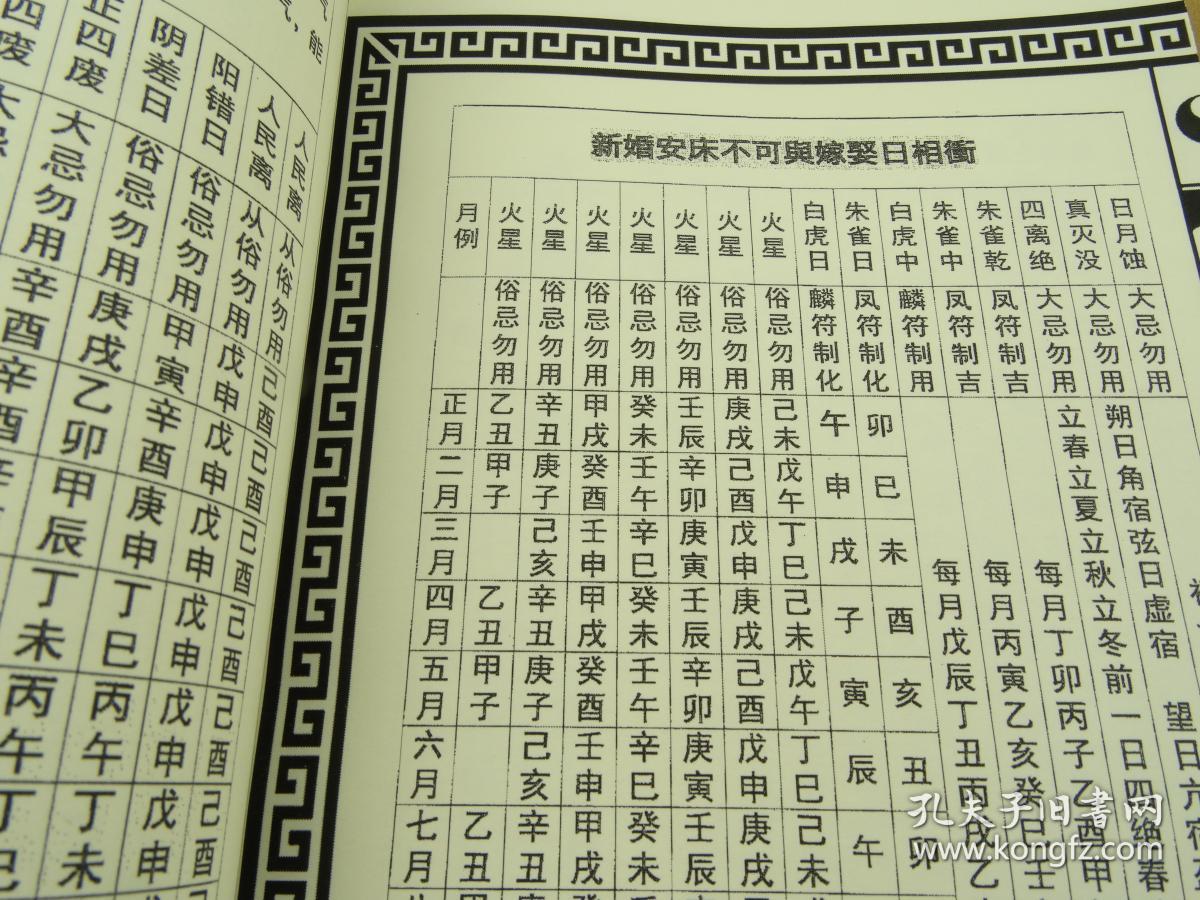 气，能
人民离 从俗勿用 己酉 己酉 己酉 己酉 己酉 己酉 己酉
人民离 从俗勿用 戊申 戊申 戊申 戊申 戊申 戊申 戊申
阳错日 俗忌勿用 甲寅 辛酉 庚申 丁巳 丙午 丁未
阴差日 俗忌勿用 庚戌 乙卯 甲辰 丁未 丙午 丁巳
正四废 大忌勿用 辛酉 辛酉
四废 大忌
新婚安床不可與嫁娶日相衝
月例 火星 火星 火星 火星 火星 火星 火星 白虎日 朱雀日 白虎中 朱雀中 朱雀乾 四离绝 真灭没 日月蚀
俗忌勿用 俗忌勿用 俗忌勿用 俗忌勿用 俗忌勿用 俗忌勿用 俗忌勿用 麟符制化 凤符制化 麟符制用 凤符制吉 凤符制吉 大忌勿用 大忌勿用 大忌勿用
正月 乙丑 辛丑 甲戌 癸未 壬辰 庚戌 己未 午 卯
二月 甲子 庚子 癸酉 壬午 辛卯 己酉 戊午 申 巳
三月 己亥 壬申 辛巳 庚寅 戊申 丁巳 戌 未
四月 乙丑 辛丑 甲戌 癸未 壬辰 庚戌 己未 子 酉
五月 甲子 庚子 癸酉 壬午 辛卯 己酉 戊午 寅 亥
六月 己亥 壬申 辛巳 庚寅 戊申 丁巳 辰 丑
七月 乙丑 辛丑 甲戌 癸未 壬辰 庚戌 己未 午 卯
每月戊辰丁丑丙戌乙
每月丙寅乙亥癸巳壬
每月丁卯丙子乙酉甲
立春立夏立秋立冬前一日四绝春
朔日角宿弦日虚宿
望日亢宿
孔夫子旧书网
www.kongfz.com